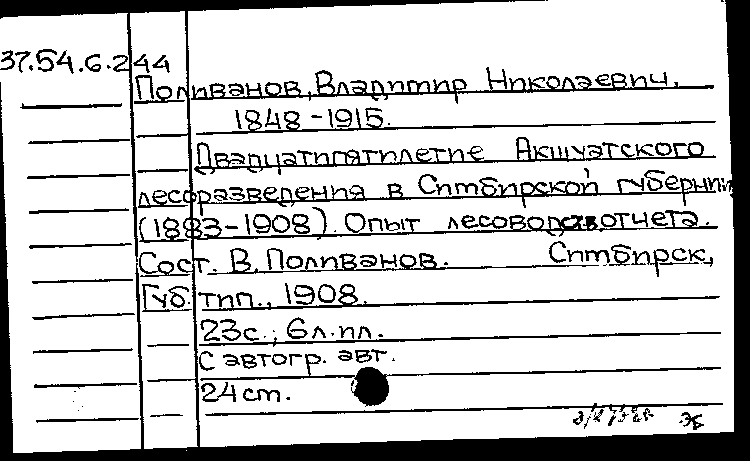 37.54.6.244
Поливанов, Владимир Николаевич.
1848-1915.
Двадцатипятилетие Акшуатского
лесоразведения в Симбирской губернии
(1883-1908). Опыт лесоводств. отчета.
Сост. В. Поливанов. Симбирск,
Губ. тип., 1908.
23с.; 6л.ил.
С автогр. авт.
24 cm.